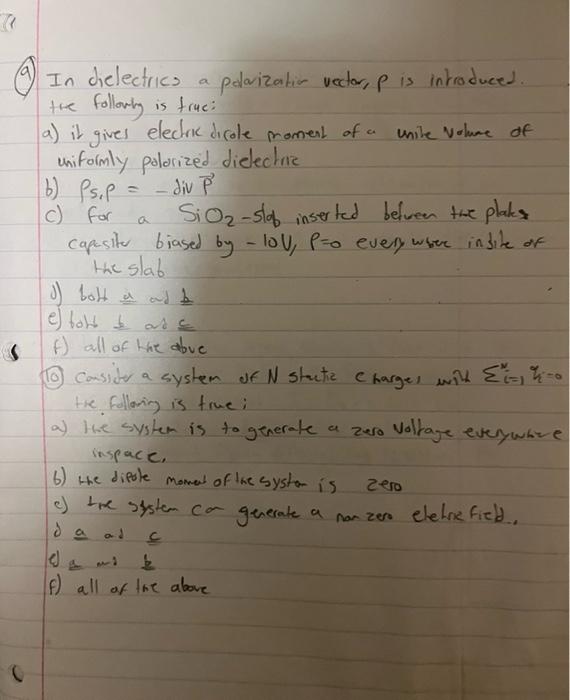 9) In dielectrics a polarization vector, P is introduced.
the following is true:
a) it gives electric dicole moment of a unite volume of
uniformly polorized dielectric
b) ρs,p = - div P⃗
c) for a SiO2-slab inserted between the plates
capasitor biased by -10V, P=0 everywhere inside of
the slab
d) both a ad b
e) both b ad c
f) all of the above
10) Consider a system of N static charges with Σᴺi=1 qi=0
the following is true;
a) the system is to generate a zero voltage everywhere
inspace,
b) the dipole moment of the system is zero
c) the system can generate a non zero eletric field..
d a ad c
e) a and b
f) all of the above